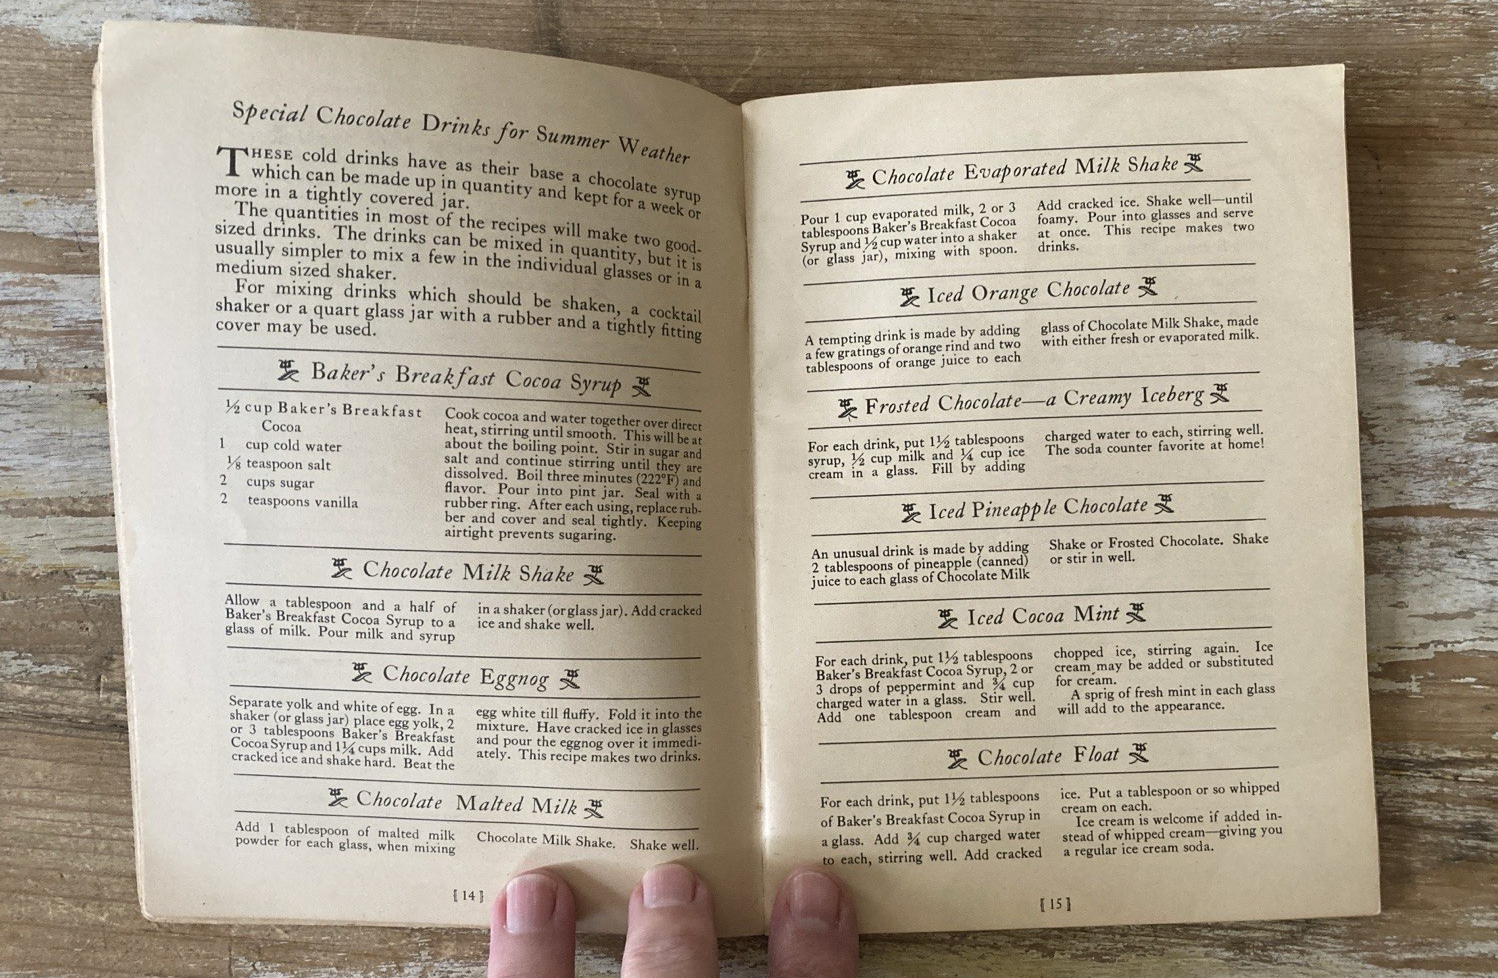 Special Chocolate Drinks for Summer Weather
THESE cold drinks have as their base a chocolate syrup
which can be made up in quantity and kept for a week or
more in a tightly covered jar.
The quantities in most of the recipes will make two good-
sized drinks. The drinks can be mixed in quantity, but it is
usually simpler to mix a few in the individual glasses or in a
medium sized shaker.
For mixing drinks which should be shaken, a cocktail
shaker or a quart glass jar with a rubber and a tightly fitting
cover may be used.
Baker's Breakfast Cocoa Syrup
½ cup Baker's Breakfast
Cocoa
1 cup cold water
⅛ teaspoon salt
2 cups sugar
2 teaspoons vanilla
Cook cocoa and water together over direct
heat, stirring until smooth. This will be at
about the boiling point. Stir in sugar and
salt and continue stirring until they are
dissolved. Boil three minutes (222°F) and
flavor. Pour into pint jar. Seal with a
rubber ring. After each using, replace rub-
ber and cover and seal tightly. Keeping
airtight prevents sugaring.
Chocolate Milk Shake
Allow a tablespoon and a half of
Baker's Breakfast Cocoa Syrup to a
glass of milk. Pour milk and syrup
in a shaker (or glass jar). Add cracked
ice and shake well.
Chocolate Eggnog
Separate yolk and white of egg. In a
shaker (or glass jar) place egg yolk, 2
or 3 tablespoons Baker's Breakfast
Cocoa Syrup and 1¼ cups milk. Add
cracked ice and shake hard. Beat the
egg white till fluffy. Fold it into the
mixture. Have cracked ice in glasses
and pour the eggnog over it immedi-
ately. This recipe makes two drinks.
Chocolate Malted Milk
Add 1 tablespoon of malted milk
powder for each glass, when mixing
Chocolate Milk Shake. Shake well.
[14]
Chocolate Evaporated Milk Shake
Pour 1 cup evaporated milk, 2 or 3
tablespoons Baker's Breakfast Cocoa
Syrup and ½ cup water into a shaker
(or glass jar), mixing with spoon.
Add cracked ice. Shake well—until
foamy. Pour into glasses and serve
at once. This recipe makes two
drinks.
Iced Orange Chocolate
A tempting drink is made by adding
a few gratings of orange rind and two
tablespoons of orange juice to each
glass of Chocolate Milk Shake, made
with either fresh or evaporated milk.
Frosted Chocolate—a Creamy Iceberg
For each drink, put 1½ tablespoons
syrup, ½ cup milk and ¼ cup ice
cream in a glass. Fill by adding
charged water to each, stirring well.
The soda counter favorite at home!
Iced Pineapple Chocolate
An unusual drink is made by adding
2 tablespoons of pineapple (canned)
juice to each glass of Chocolate Milk
Shake or Frosted Chocolate. Shake
or stir in well.
Iced Cocoa Mint
For each drink, put 1½ tablespoons
Baker's Breakfast Cocoa Syrup, 2 or
3 drops of peppermint and ¾ cup
charged water in a glass. Stir well.
Add one tablespoon cream and
chopped ice, stirring again. Ice
cream may be added or substituted
for cream.
A sprig of fresh mint in each glass
will add to the appearance.
Chocolate Float
For each drink, put 1½ tablespoons
of Baker's Breakfast Cocoa Syrup in
a glass. Add ¾ cup charged water
to each, stirring well. Add cracked
ice. Put a tablespoon or so whipped
cream on each.
Ice cream is welcome if added in-
stead of whipped cream—giving you
a regular ice cream soda.
[15]